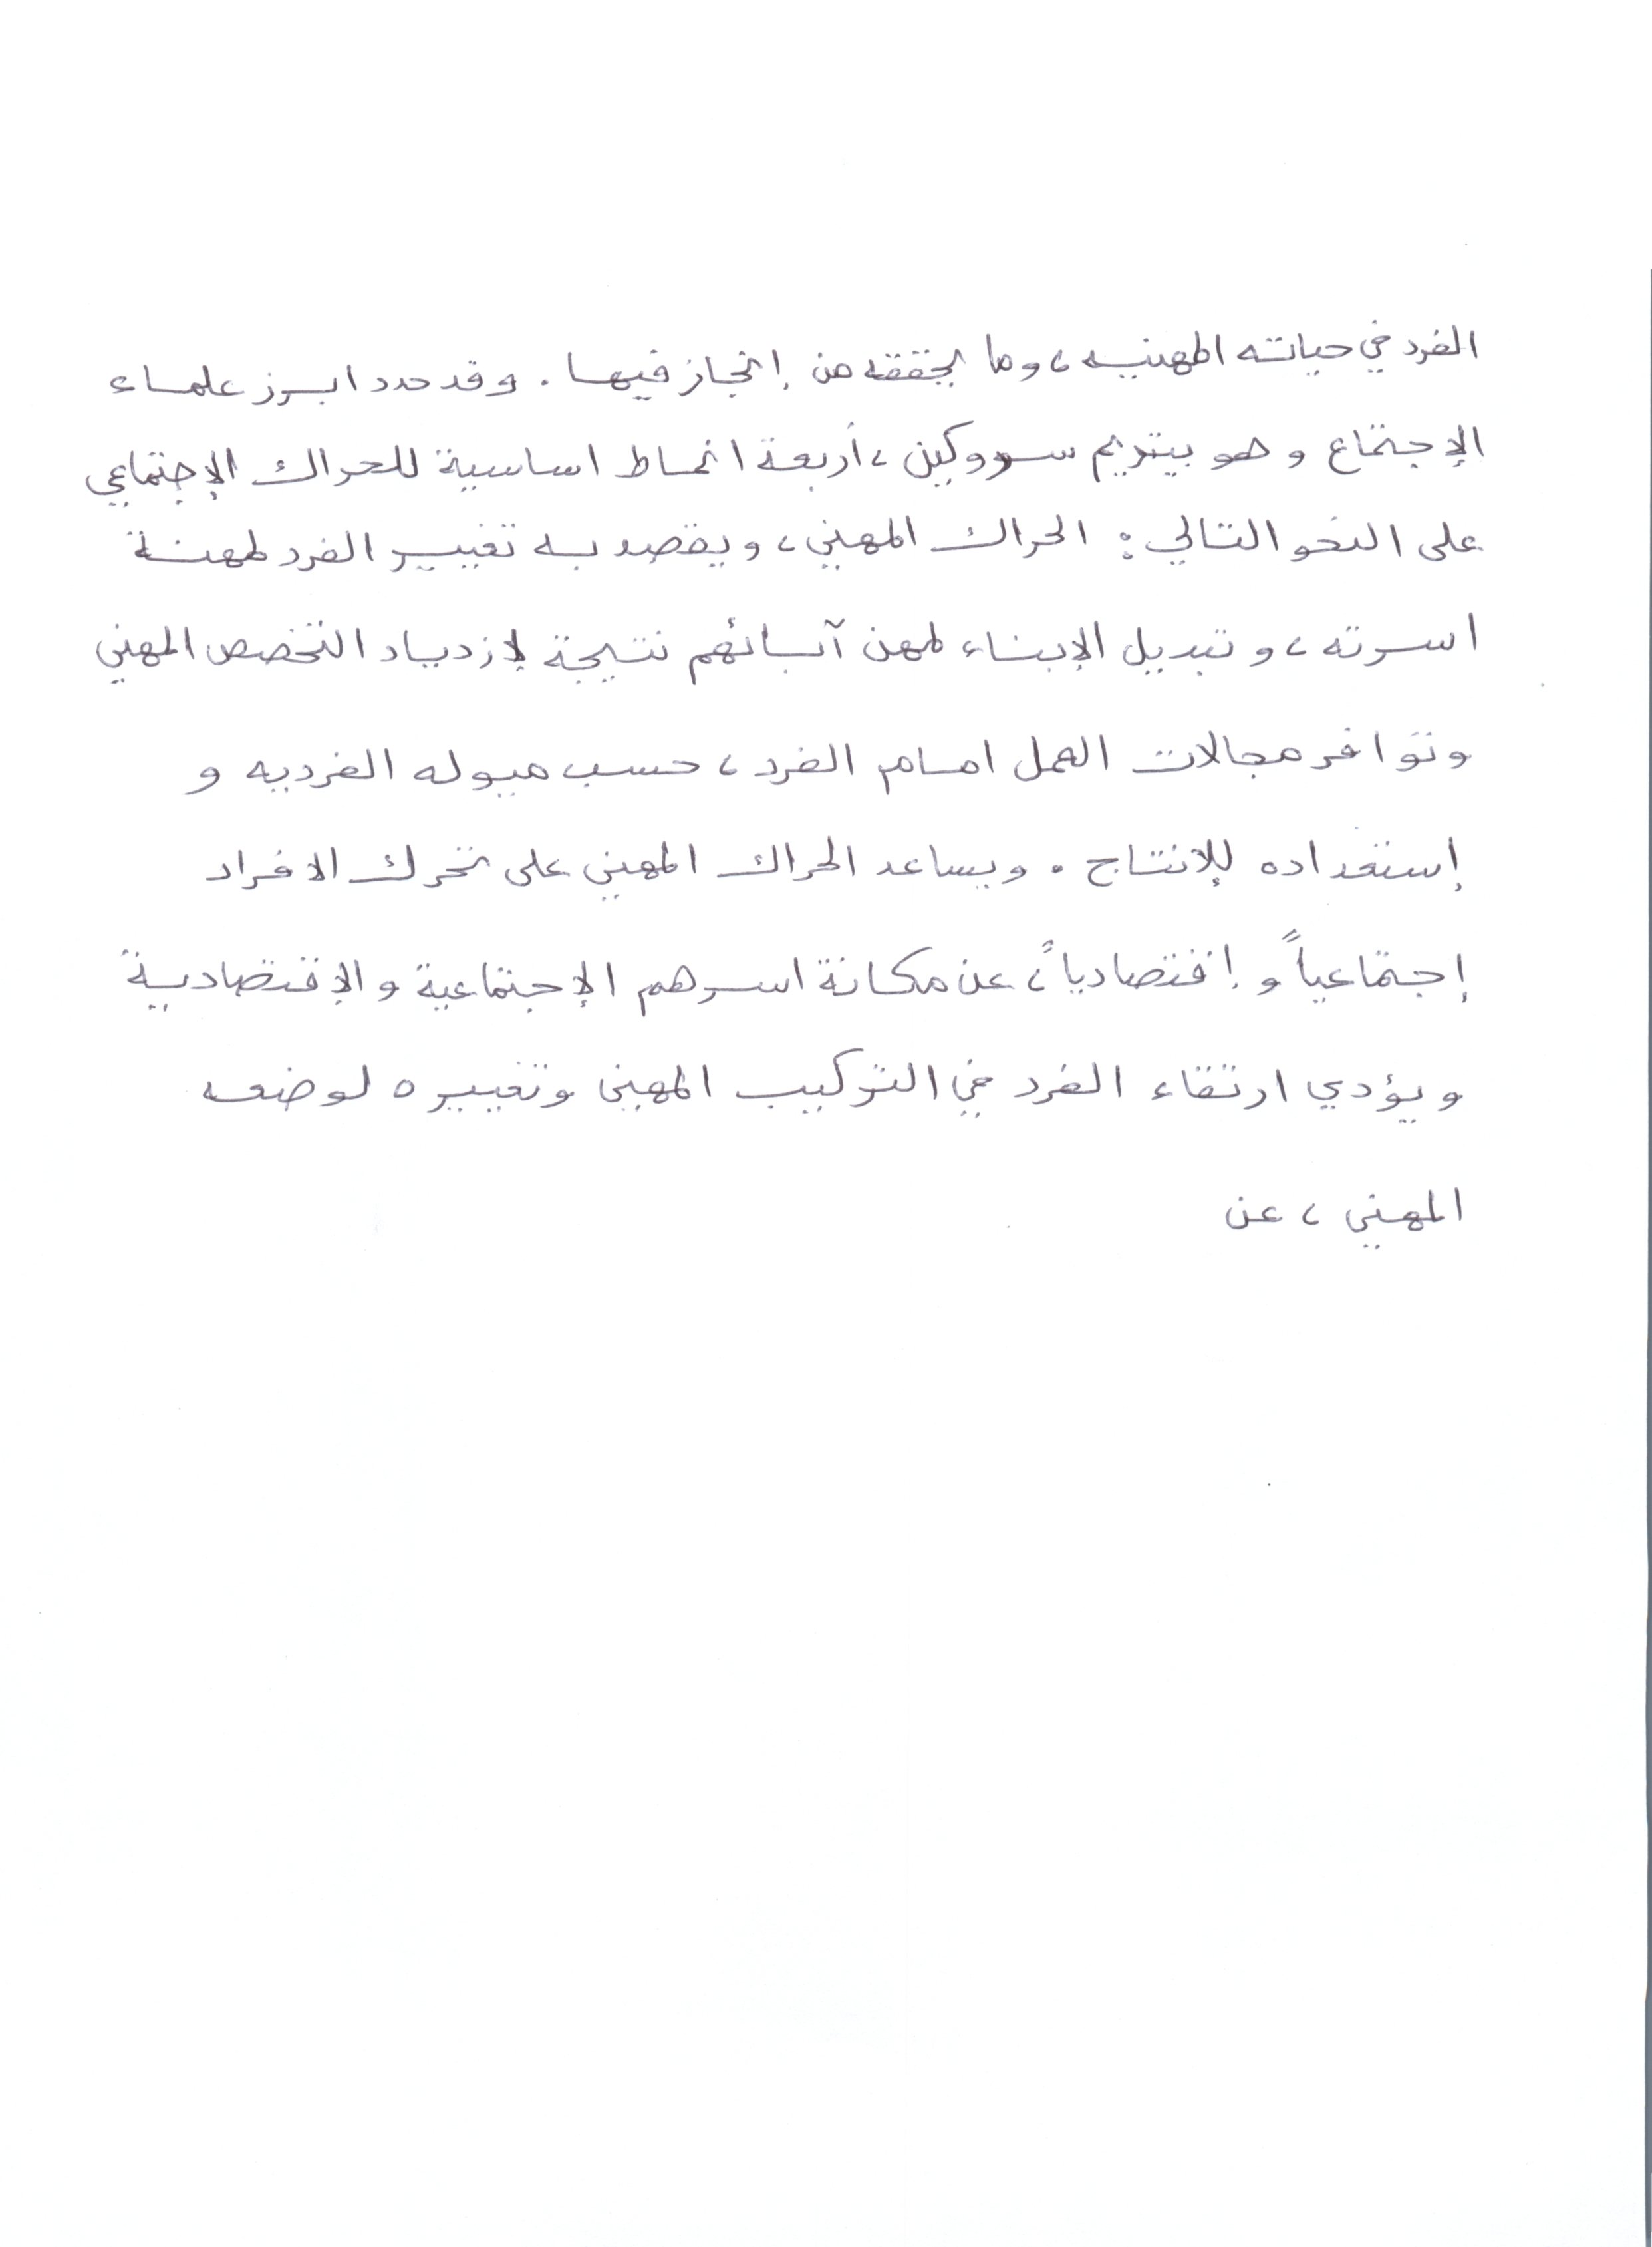 الفرد في حياته المهنيه، وما يحققه من إنجاز فيها. وقد حدد ابرز علماء
الإجتماع وهو بيتريم سوروكين، أربعة انماط اساسية للحراك الإجتماعي
على النحو التالي: الحراك المهني، ويقصد به تغيير الفرد لمهنة
اسرته، وتبديل الإبناء لمهن آبائهم نتيجة لإزدياد التخصص المهني
وتوافر مجالات العمل امام الفرد، حسب ميوله الفرديه و
إستعداده للإنتاج. ويساعد الحراك المهني على تحرك الافراد
إجتماعياً و إقتصادياً، عن مكانة اسرهم الإجتماعية والإقتصادية
ويؤدي ارتقاء الفرد في التركيب المهني وتغييره لوضعه
المهني، عن